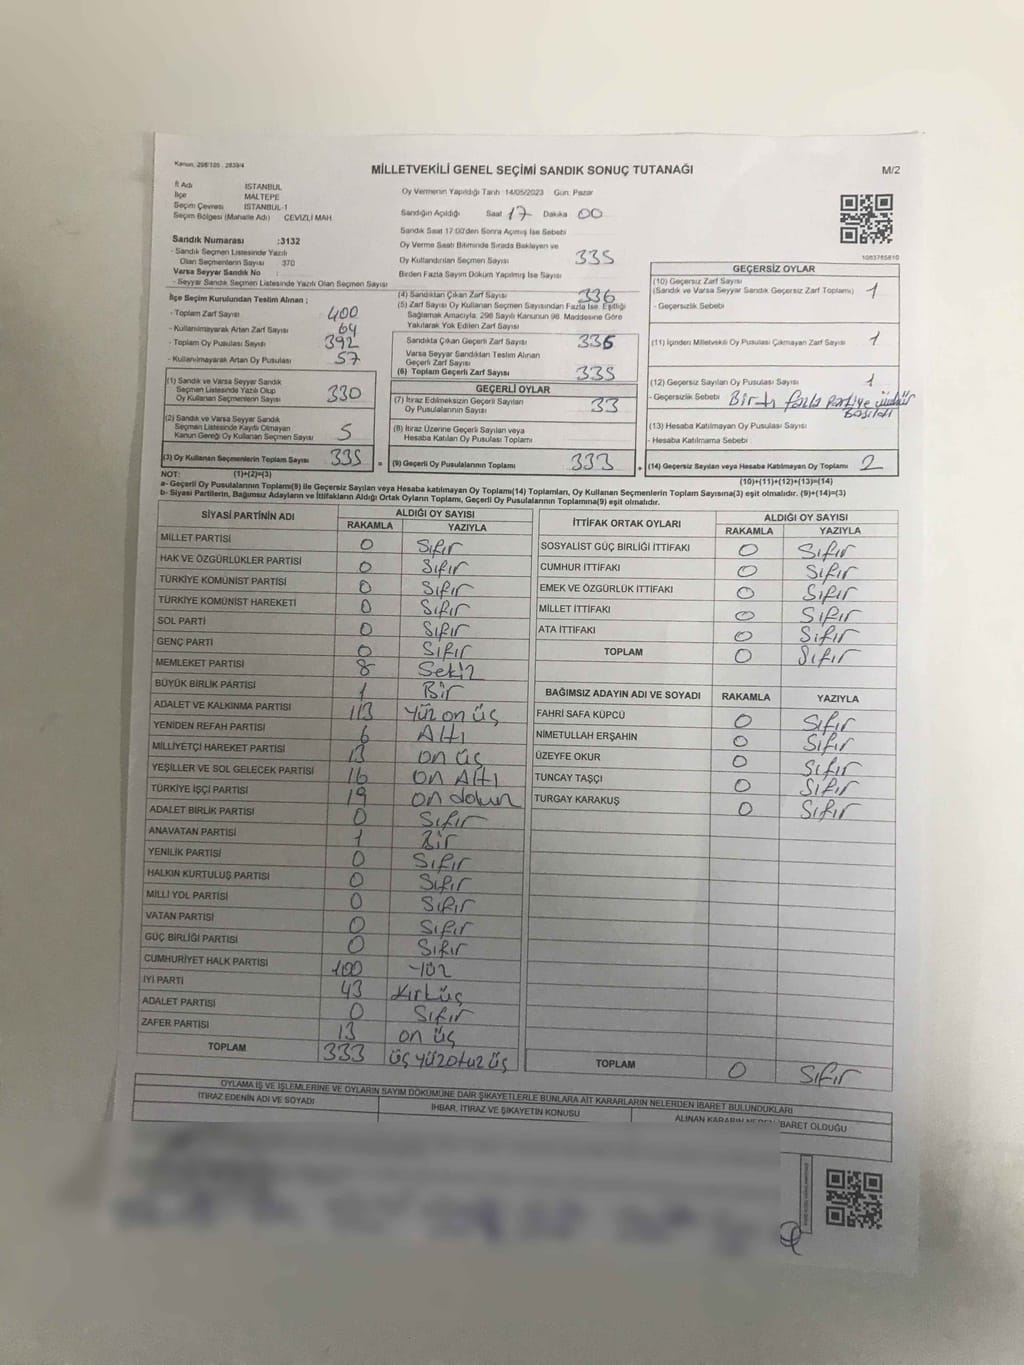 Kanun, 298/105 , 2839/4
MİLLETVEKİLİ GENEL SEÇİMİ SANDIK SONUÇ TUTANAĞI
M/2
İl Adı İSTANBUL
İlçe MALTEPE
Seçim Çevresi İSTANBUL-1
Seçim Bölgesi (Mahalle Adı) CEVİZLİ MAH.
Sandık Numarası :3132
- Sandık Seçmen Listesinde Yazılı
Olan Seçmenlerin Sayısı 370
Varsa Seyyar Sandık No :
- Seyyar Sandık Seçmen Listesinde Yazılı Olan Seçmen Sayısı
İlçe Seçim Kurulundan Teslim Alınan ;
- Toplam Zarf Sayısı 400
- Kullanılmayarak Artan Zarf Sayısı 64
- Toplam Oy Pusulası Sayısı 392
- Kullanılmayarak Artan Oy Pusulası 57
(1) Sandık ve Varsa Seyyar Sandık
Seçmen Listesinde Yazılı Olup
Oy Kullanan Seçmenlerin Sayısı 330
(2) Sandık ve Varsa Seyyar Sandık
Seçmen Listesinde Kayıtlı Olmayan
Kanun Gereği Oy Kullanan Seçmen Sayısı 5
(3) Oy Kullanan Seçmenlerin Toplam Sayısı 335 =
Oy Vermenin Yapıldığı Tarih :14/05/2023 Gün: Pazar
Sandığın Açıldığı Saat 17 Dakika 00
Sandık Saat 17:00'den Sonra Açılmış İse Sebebi
Oy Verme Saati Bitiminde Sırada Bekleyen ve
Oy Kullandırılan Seçmen Sayısı 335
Birden Fazla Sayım Döküm Yapılmış İse Sayısı
(4) Sandıktan Çıkan Zarf Sayısı 336
(5) Zarf Sayısı Oy Kullanan Seçmen Sayısından Fazla İse, Eşitliği
Sağlamak Amacıyla, 298 Sayılı Kanunun 98. Maddesine Göre
Yakılarak Yok Edilen Zarf Sayısı
Sandıkta Çıkan Geçerli Zarf Sayısı 336
Varsa Seyyar Sandıktan Teslim Alınan
Geçerli Zarf Sayısı
(6) Toplam Geçerli Zarf Sayısı 335
GEÇERLİ OYLAR
(7) İtiraz Edilmeksizin Geçerli Sayılan 33
Oy Pusulalarının Sayısı
(8) İtiraz Üzerine Geçerli Sayılan veya
Hesaba Katılan Oy Pusulası Toplamı
(9) Geçerli Oy Pusulalarının Toplamı 333 +
GEÇERSİZ OYLAR
(10) Geçersiz Zarf Sayısı
(Sandık ve Varsa Seyyar Sandık Geçersiz Zarf Toplamı) 1
- Geçersizlik Sebebi
(11) İçinden Milletvekili Oy Pusulası Çıkmayan Zarf Sayısı 1
(12) Geçersiz Sayılan Oy Pusulası Sayısı 1
- Geçersizlik Sebebi fazla Partiye mühür
Basıldı
(13) Hesaba Katılmayan Oy Pusulası Sayısı
- Hesaba Katılmama Sebebi
(14) Geçersiz Sayılan veya Hesaba Katılmayan Oy Toplamı 2
NOT: (1)+(2)=(3)
(10)+(11)+(12)+(13)=(14)
a- Geçerli Oy Pusulalarının Toplamı(9) ile Geçersiz Sayılan veya Hesaba katılmayan Oy Toplamı(14) Toplamları, Oy Kullanan Seçmenlerin Toplam Sayısına(3) eşit olmalıdır. (9)+(14)=(3)
b- Siyasi Partilerin, Bağımsız Adayların ve İttifakların Aldığı Ortak Oyların Toplamı, Geçerli Oy Pusulalarının Toplamına(9) eşit olmalıdır.
SİYASİ PARTİNİN ADI ALDIĞI OY SAYISI
RAKAMLA YAZIYLA
MİLLET PARTİSİ 0 Sıfır
HAK VE ÖZGÜRLÜKLER PARTİSİ 0 Sıfır
TÜRKİYE KOMÜNİST PARTİSİ 0 Sıfır
TÜRKİYE KOMÜNİST HAREKETİ 0 Sıfır
SOL PARTİ 0 Sıfır
GENÇ PARTİ 0 Sıfır
MEMLEKET PARTİSİ 8 Sekiz
BÜYÜK BİRLİK PARTİSİ 1 Bir
ADALET VE KALKINMA PARTİSİ 113 Yüz on üç
YENİDEN REFAH PARTİSİ 6 Altı
MİLLİYETÇİ HAREKET PARTİSİ 13 on üç
YEŞİLLER VE SOL GELECEK PARTİSİ 16 on Altı
TÜRKİYE İŞÇİ PARTİSİ 19 on dokuz
ADALET BİRLİK PARTİSİ 0 Sıfır
ANAVATAN PARTİSİ 1 Bir
YENİLİK PARTİSİ 0 Sıfır
HALKIN KURTULUŞ PARTİSİ 0 Sıfır
MİLLİ YOL PARTİSİ 0 Sıfır
VATAN PARTİSİ 0 Sıfır
GÜÇ BİRLİĞİ PARTİSİ 0 Sıfır
CUMHURİYET HALK PARTİSİ 100 Yüz
İYİ PARTİ 43 Kırküç
ADALET PARTİSİ 0 Sıfır
ZAFER PARTİSİ 13 on üç
TOPLAM 333 üç yüzotuz üç
İTTİFAK ORTAK OYLARI ALDIĞI OY SAYISI
RAKAMLA YAZIYLA
SOSYALİST GÜÇ BİRLİĞİ İTTİFAKI 0 Sıfır
CUMHUR İTTİFAKI 0 Sıfır
EMEK VE ÖZGÜRLÜK İTTİFAKI 0 Sıfır
MİLLET İTTİFAKI 0 Sıfır
ATA İTTİFAKI 0 Sıfır
TOPLAM 0 Sıfır
BAĞIMSIZ ADAYIN ADI VE SOYADI RAKAMLA YAZIYLA
FAHRİ SAFA KÜPCÜ 0 Sıfır
NİMETULLAH ERŞAHİN 0 Sıfır
ÜZEYFE OKUR 0 Sıfır
TUNCAY TAŞÇI 0 Sıfır
TURGAY KARAKUŞ 0 Sıfır
TOPLAM 0 Sıfır
OYLAMA İŞ VE İŞLEMLERİNE VE OYLARIN SAYIM DÖKÜMÜNE DAİR ŞİKAYETLERLE BUNLARA AİT KARARLARIN NELERDEN İBARET BULUNDUKLARI
İTİRAZ EDENİN ADI VE SOYADI İHBAR, İTİRAZ VE ŞİKAYETİN KONUSU ALINAN KARARIN NEDEN İBARET OLDUĞU